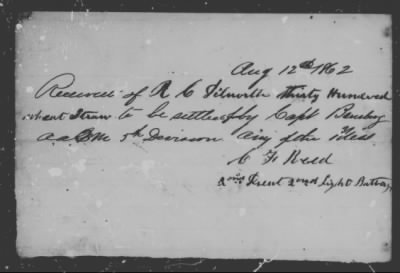 Aug 12th 1862
Received of R C Dilworth thirty Hundred
wheat Straw to be settled by Capt
5th Division Army of the
C F Reed
2nd Lieut 2nd Light Battery